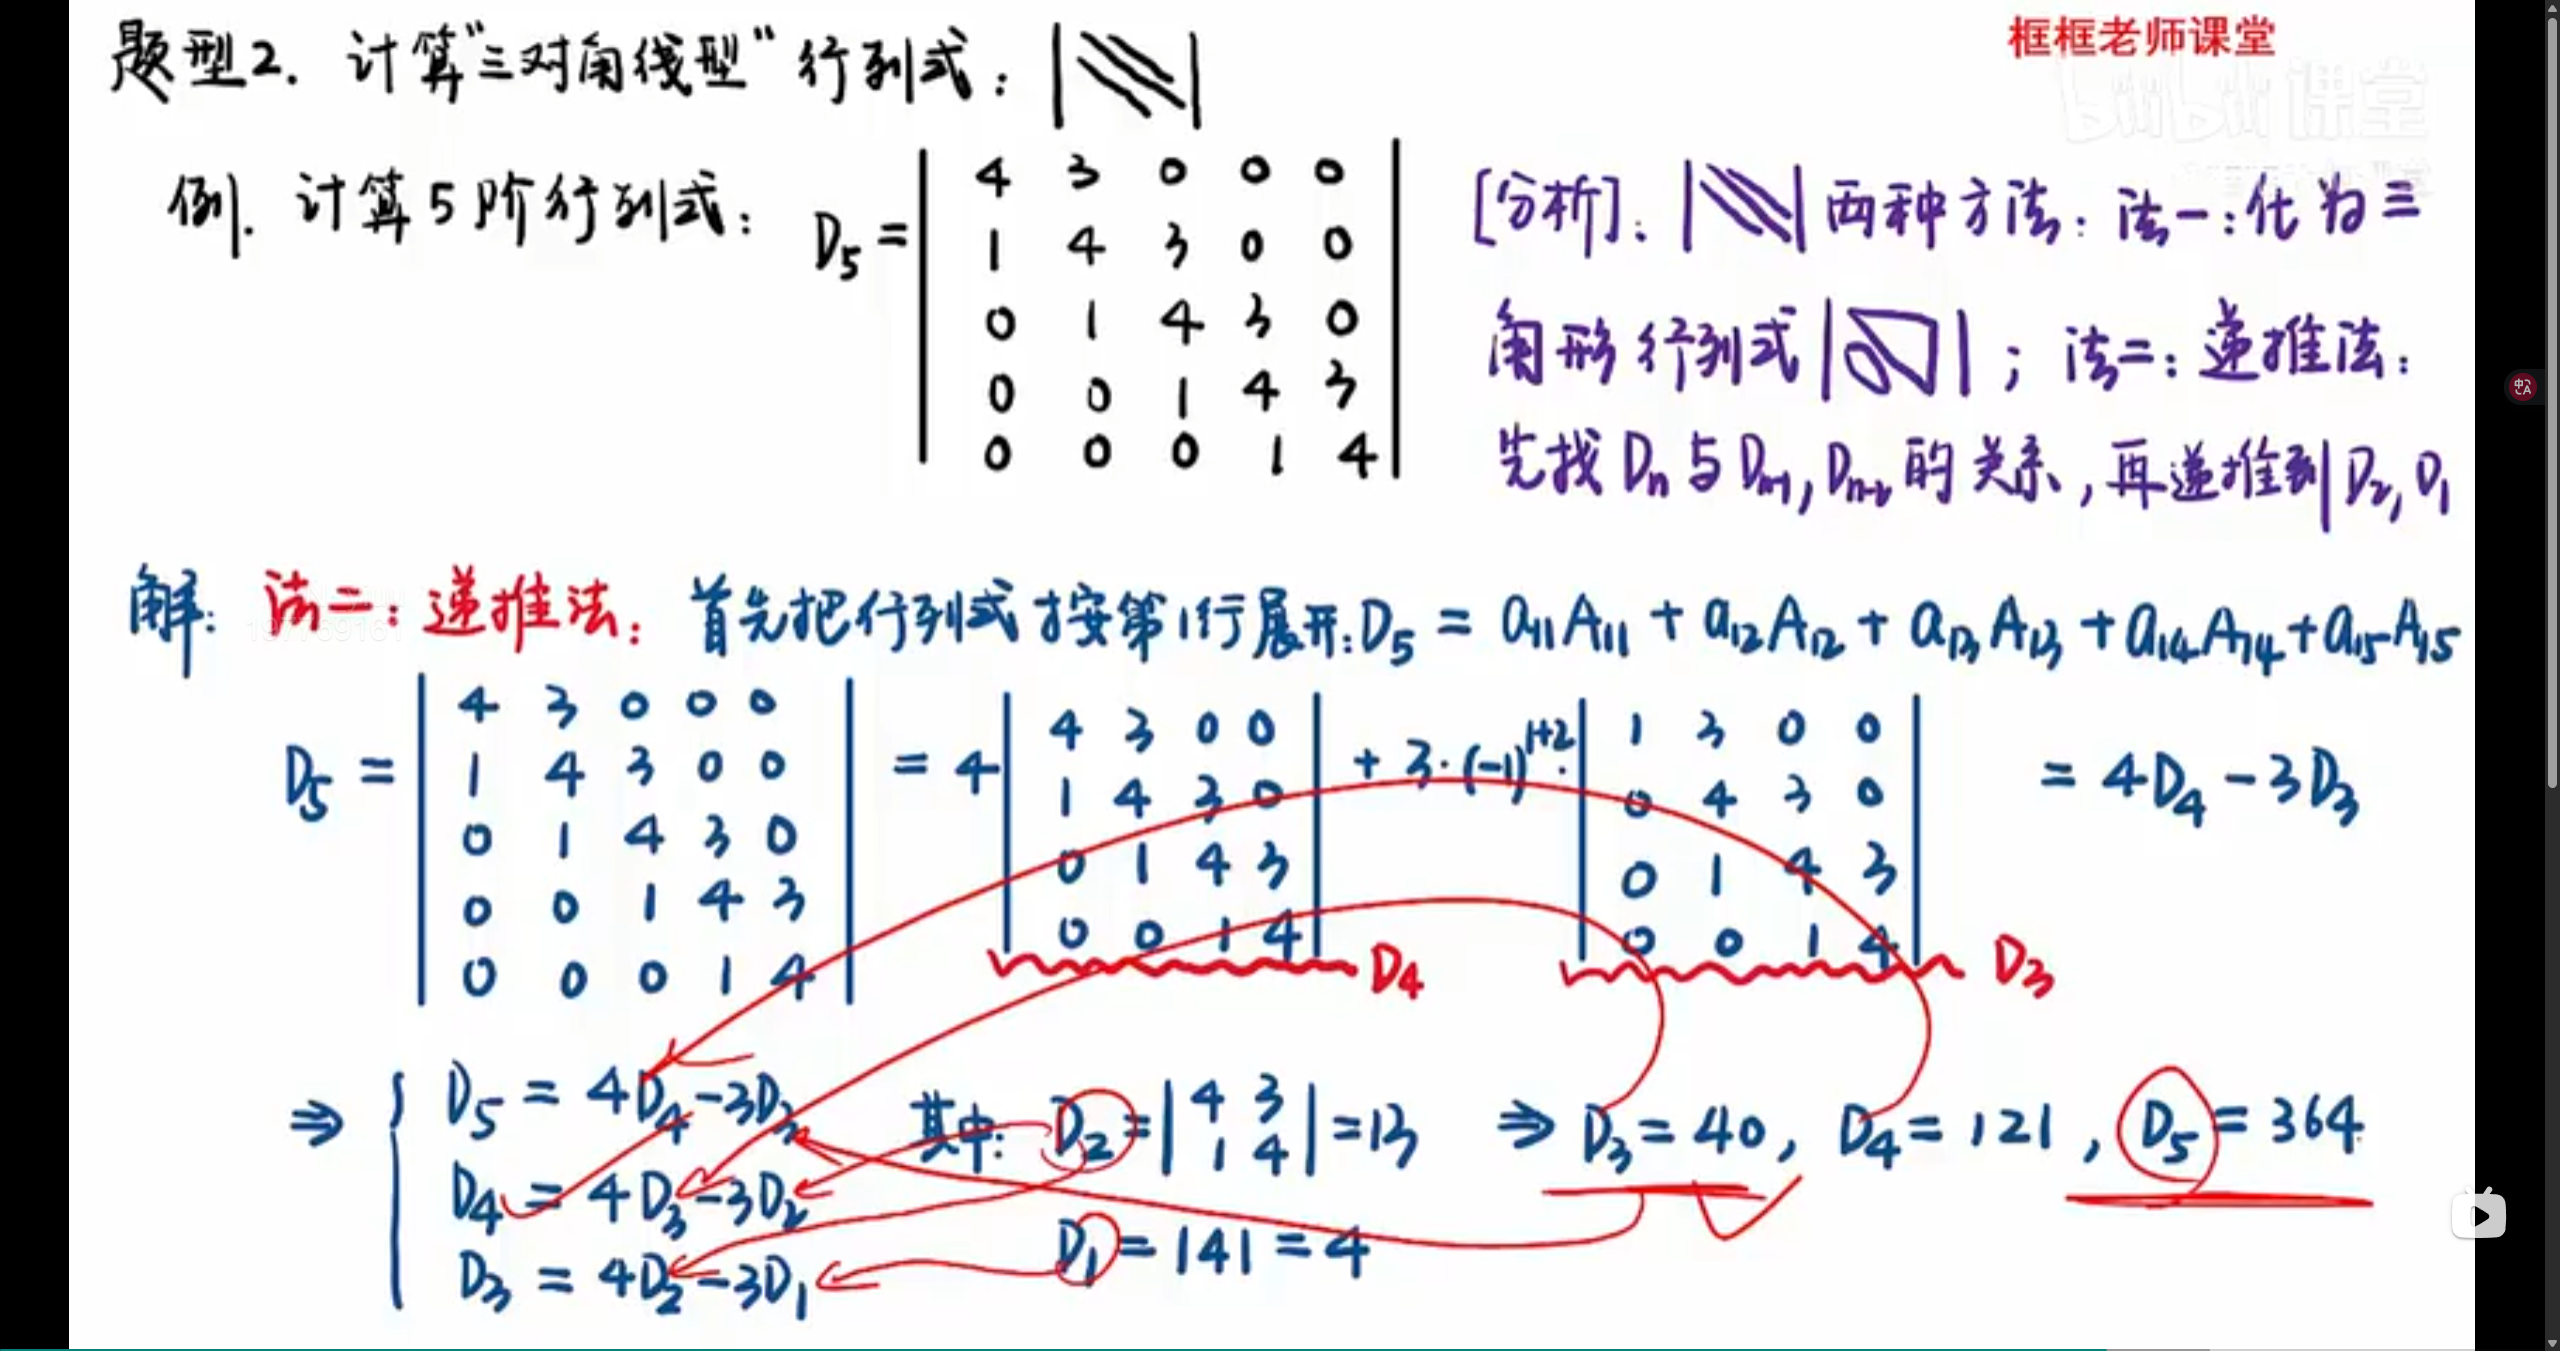 题型2. 计算"三对角线型"行列式:
框框老师课堂
bilibili课堂
例. 计算5阶行列式: D₅ =
4 3 0 0 0
1 4 3 0 0
0 1 4 3 0
0 0 1 4 3
0 0 0 1 4
[分析]: 两种方法: 法一: 化为三
角形行列式 ; 法二: 递推法:
先找Dₙ与Dₙ₋₁, Dₙ₋₂的关系, 再递推到D₂, D₁
解: 法二: 递推法: 首先把行列式按第1行展开: D₅ = a₁₁A₁₁ + a₁₂A₁₂ + a₁₃A₁₃ + a₁₄A₁₄ + a₁₅A₁₅
D₅ =
4 3 0 0 0
1 4 3 0 0
0 1 4 3 0
0 0 1 4 3
0 0 0 1 4
= 4
4 3 0 0
1 4 3 0
0 1 4 3
0 0 1 4
D₄
+ 3·(-1)¹⁺²·
1 3 0 0
0 4 3 0
0 1 4 3
0 0 1 4
D₃
= 4D₄ - 3D₃
⇒ D₅ = 4D₄ - 3D₃
D₄ = 4D₃ - 3D₂
D₃ = 4D₂ - 3D₁
其中: D₂ = |4 3
1 4| = 13
D₁ = |4| = 4
⇒ D₃ = 40, D₄ = 121, D₅ = 364